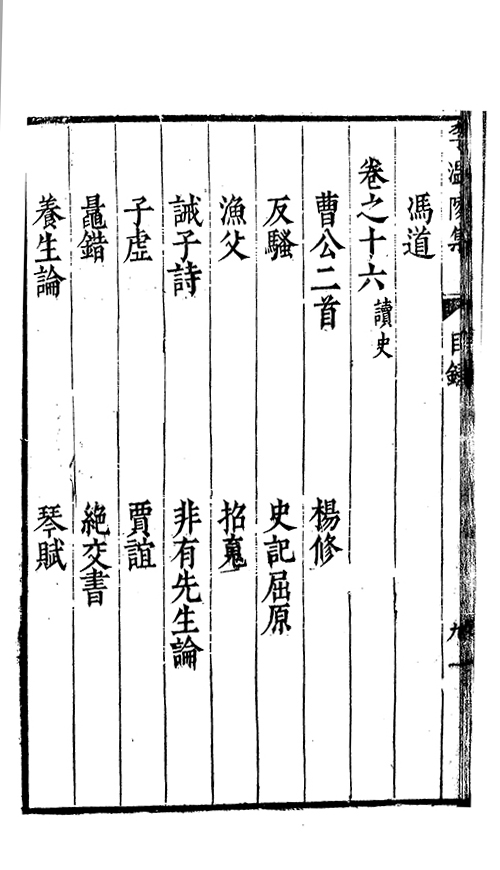 李溫陵集
目錄
九
馮道
卷之十六 讀史
曹公二首 楊修
反騷 史記屈原
漁父 招䰟
誡子詩 非有先生論
子虛 賈誼
鼂錯 絕交書
養生論 琴賦